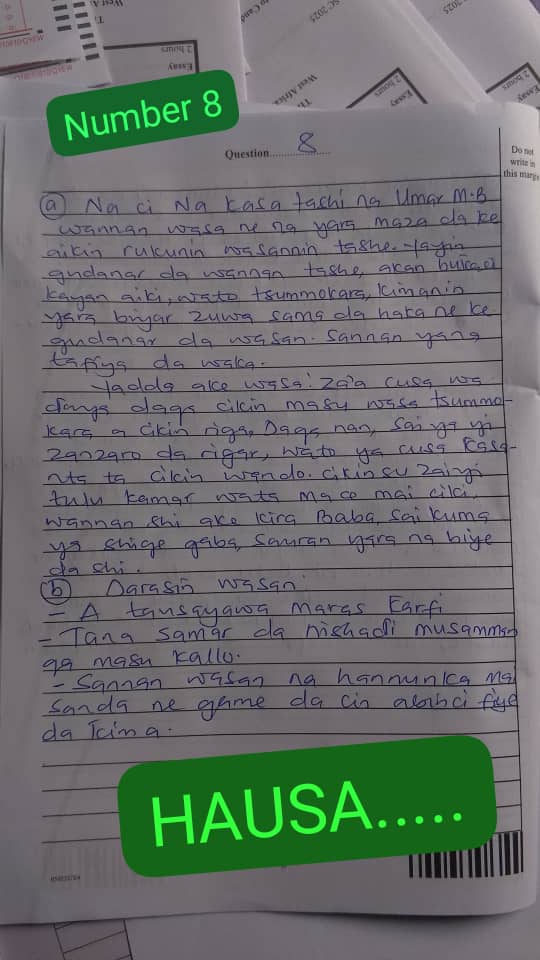 West Afri
2 hours
Essay
SC 2025
West Africa
2 hours
Essay
2025
2 hours
Essay
Number 8
Question........8........
Do not
write in
this margin
(a) Na ci Na kasa tashi na Umar M.B
wannan wasa ne na yara maza da ke
aikin rukunin wasannin tashe. Yayin
gudanar da wannan tashe, akan
kayan aiki, wato tsummokara, kimanin
yara biyar zuwa sama da haka ne ke
gudanar da wasan. Sannan yana
tafiya da waka.
Yadda ake wasa: Za'a cusa wa
danya daga cikin masu wasa tsummo-
kara a cikin riga, Daga nan, sai ya yi
zanzaro da rigar, wato ya cusa kasa-
nta ta cikin wando. cikin su zaiyi
tulu kamar wata mace mai ciki,
wannan shi ake kira Baba, sai kuma
ya shige gaba, sauran yara na biye
da shi.
(b) Darasin wasan
- A tausayawa maras karfi
- Tana samar da nishadi musamman
ga masu kallo.
- Sannan wasan na hannunka mai
sanda ne game da cin abinci fiye
da kima.
HAUSA.....